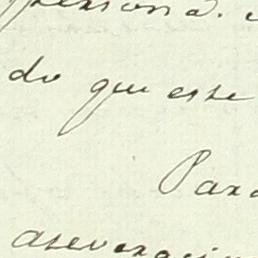 persona.
do que esse
Para
asseveraci